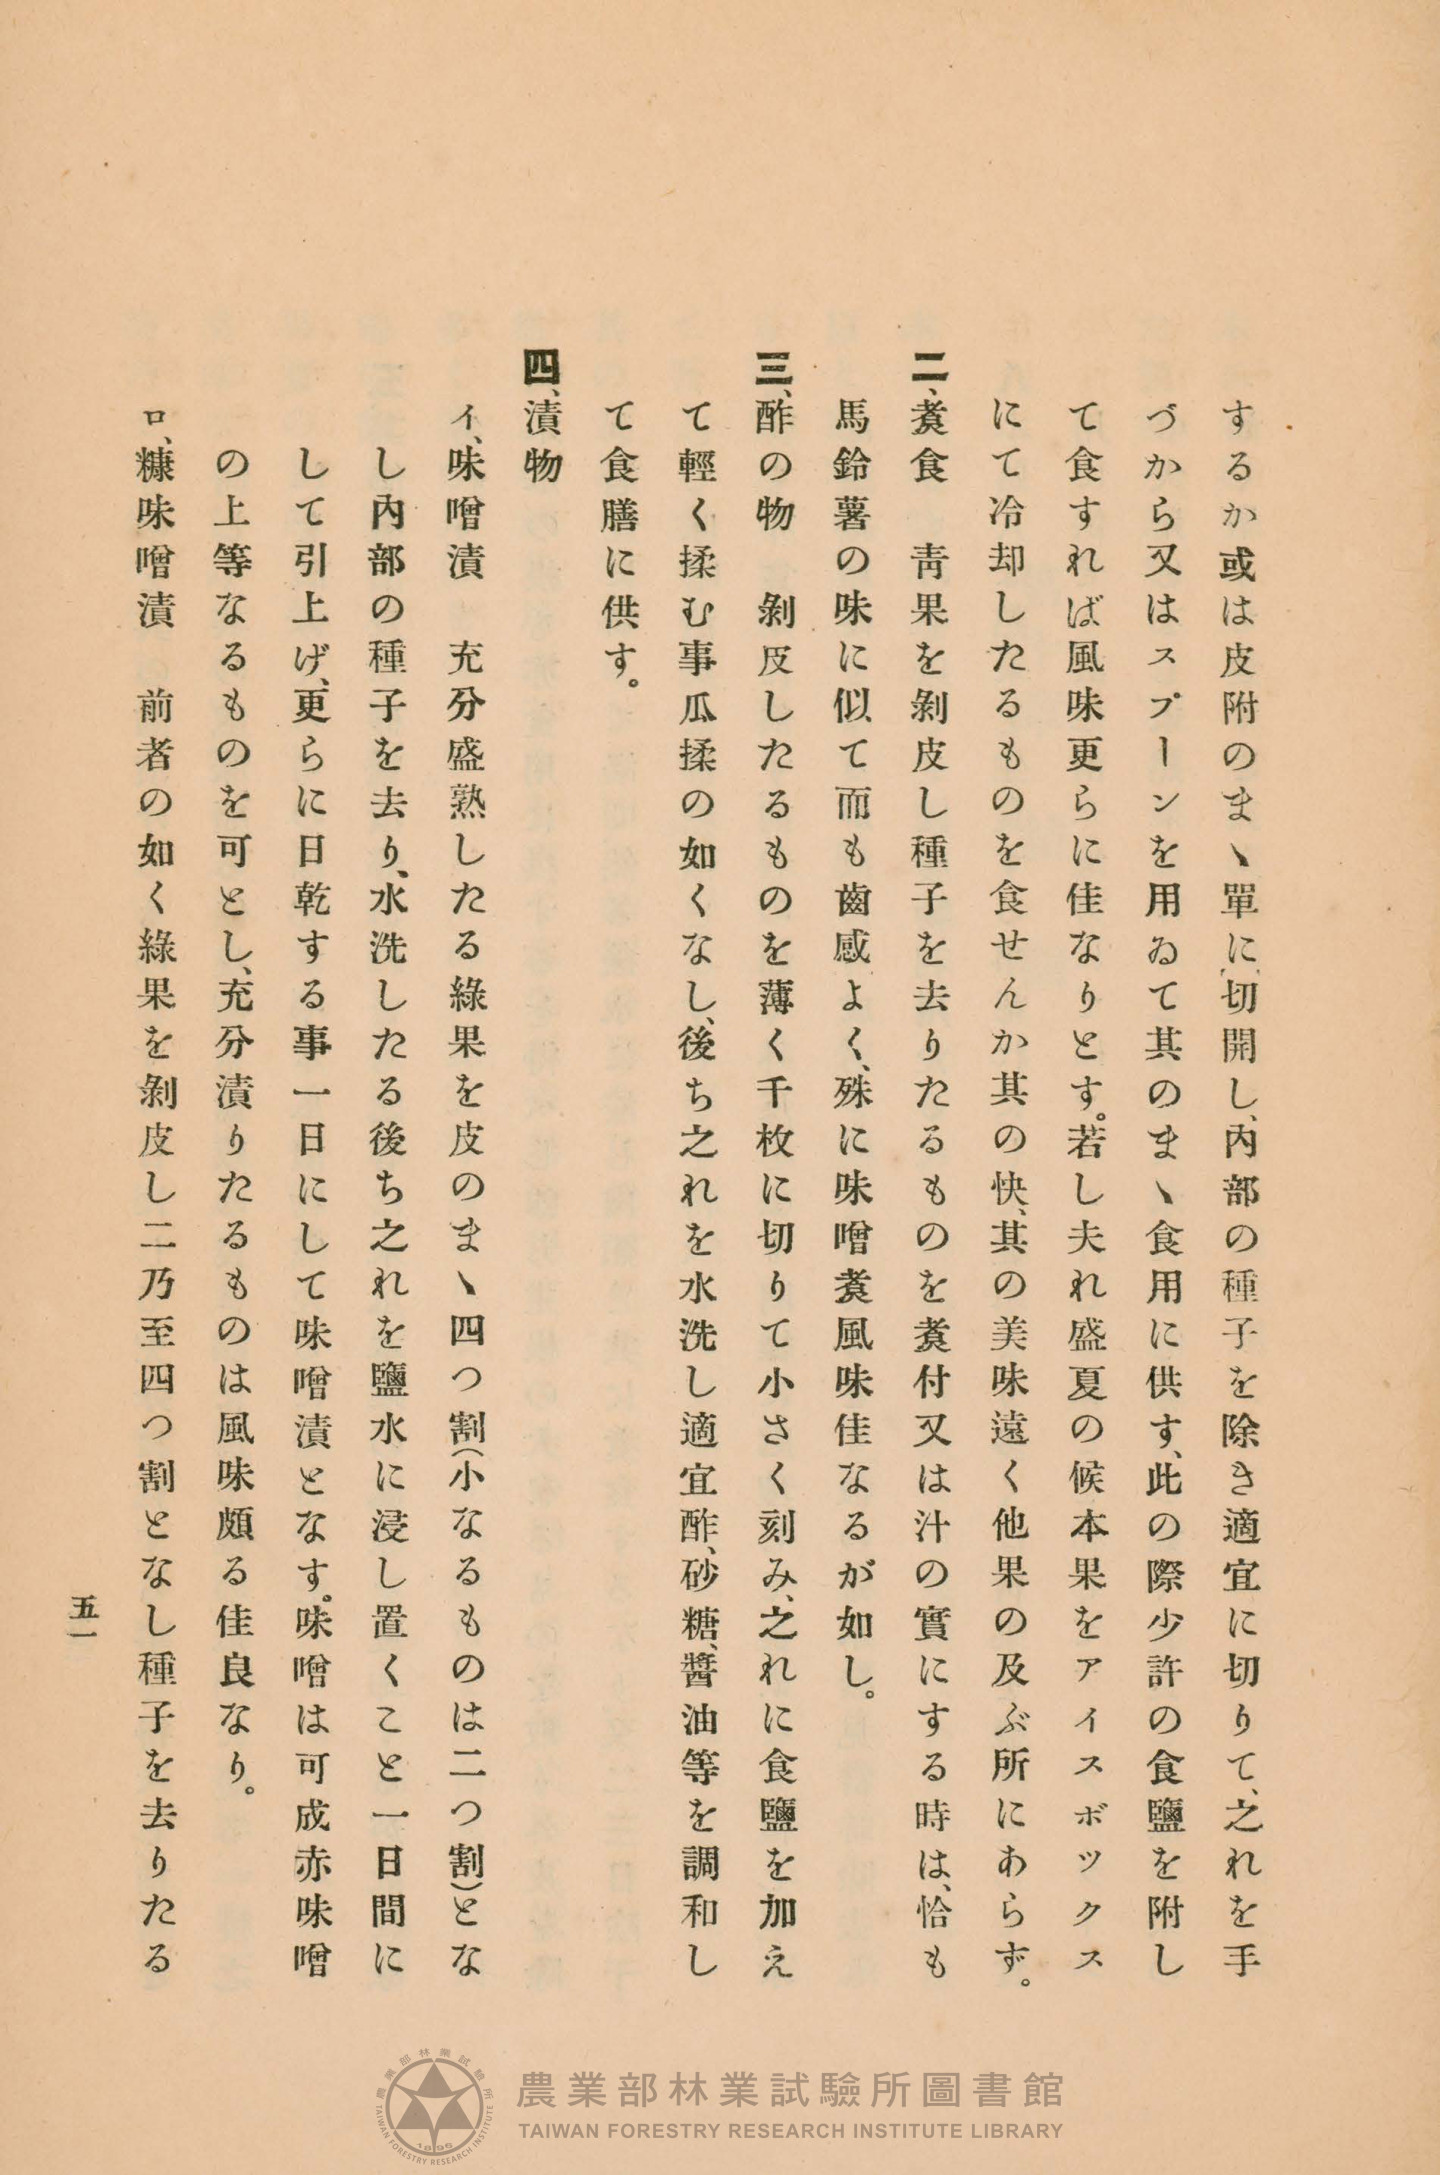 するか或は皮附のまゝ單に切開し、內部の種子を除き適宜に切りて、之れを手
づから又はスプーンを用ゐて其のまゝ食用に供す、此の際少許の食鹽を附し
て食すれば風味更らに佳なりとす。若し夫れ盛夏の候本果をアイスボックス
にて冷却したるものを食せんか其の快、其の美味遠く他果の及ぶ所にあらず。
二、煮食　靑果を剝皮し種子を去りたるものを煮付又は汁の實にする時は、恰も
馬鈴薯の味に似て而も齒感よく、殊に味噌煮風味佳なるが如し。
三、酢の物　剝皮したるものを薄く千枚に切りて小さく刻み、之れに食鹽を加え
て輕く揉む事瓜揉の如くなし、後ち之れを水洗し適宜酢、砂糖、醬油等を調和し
て食膳に供す。
四、漬物
イ、味噌漬　充分盛熟したる綠果を皮のまゝ四つ割(小なるものは二つ割)とな
し內部の種子を去り、水洗したる後ち之れを鹽水に浸し置くこと一日間に
して引上げ、更らに日乾する事一日にして味噌漬となす。味噌は可成赤味噌
の上等なるものを可とし、充分漬りたるものは風味頗る佳良なり。
ロ、糠味噌漬　前者の如く綠果を剝皮し二乃至四つ割となし種子を去りたる
五一
農業部林業試驗所圖書館
TAIWAN FORESTRY RESEARCH INSTITUTE LIBRARY
農業部林業試驗所
TAIWAN FORESTRY RESEARCH INSTITUTE
1896